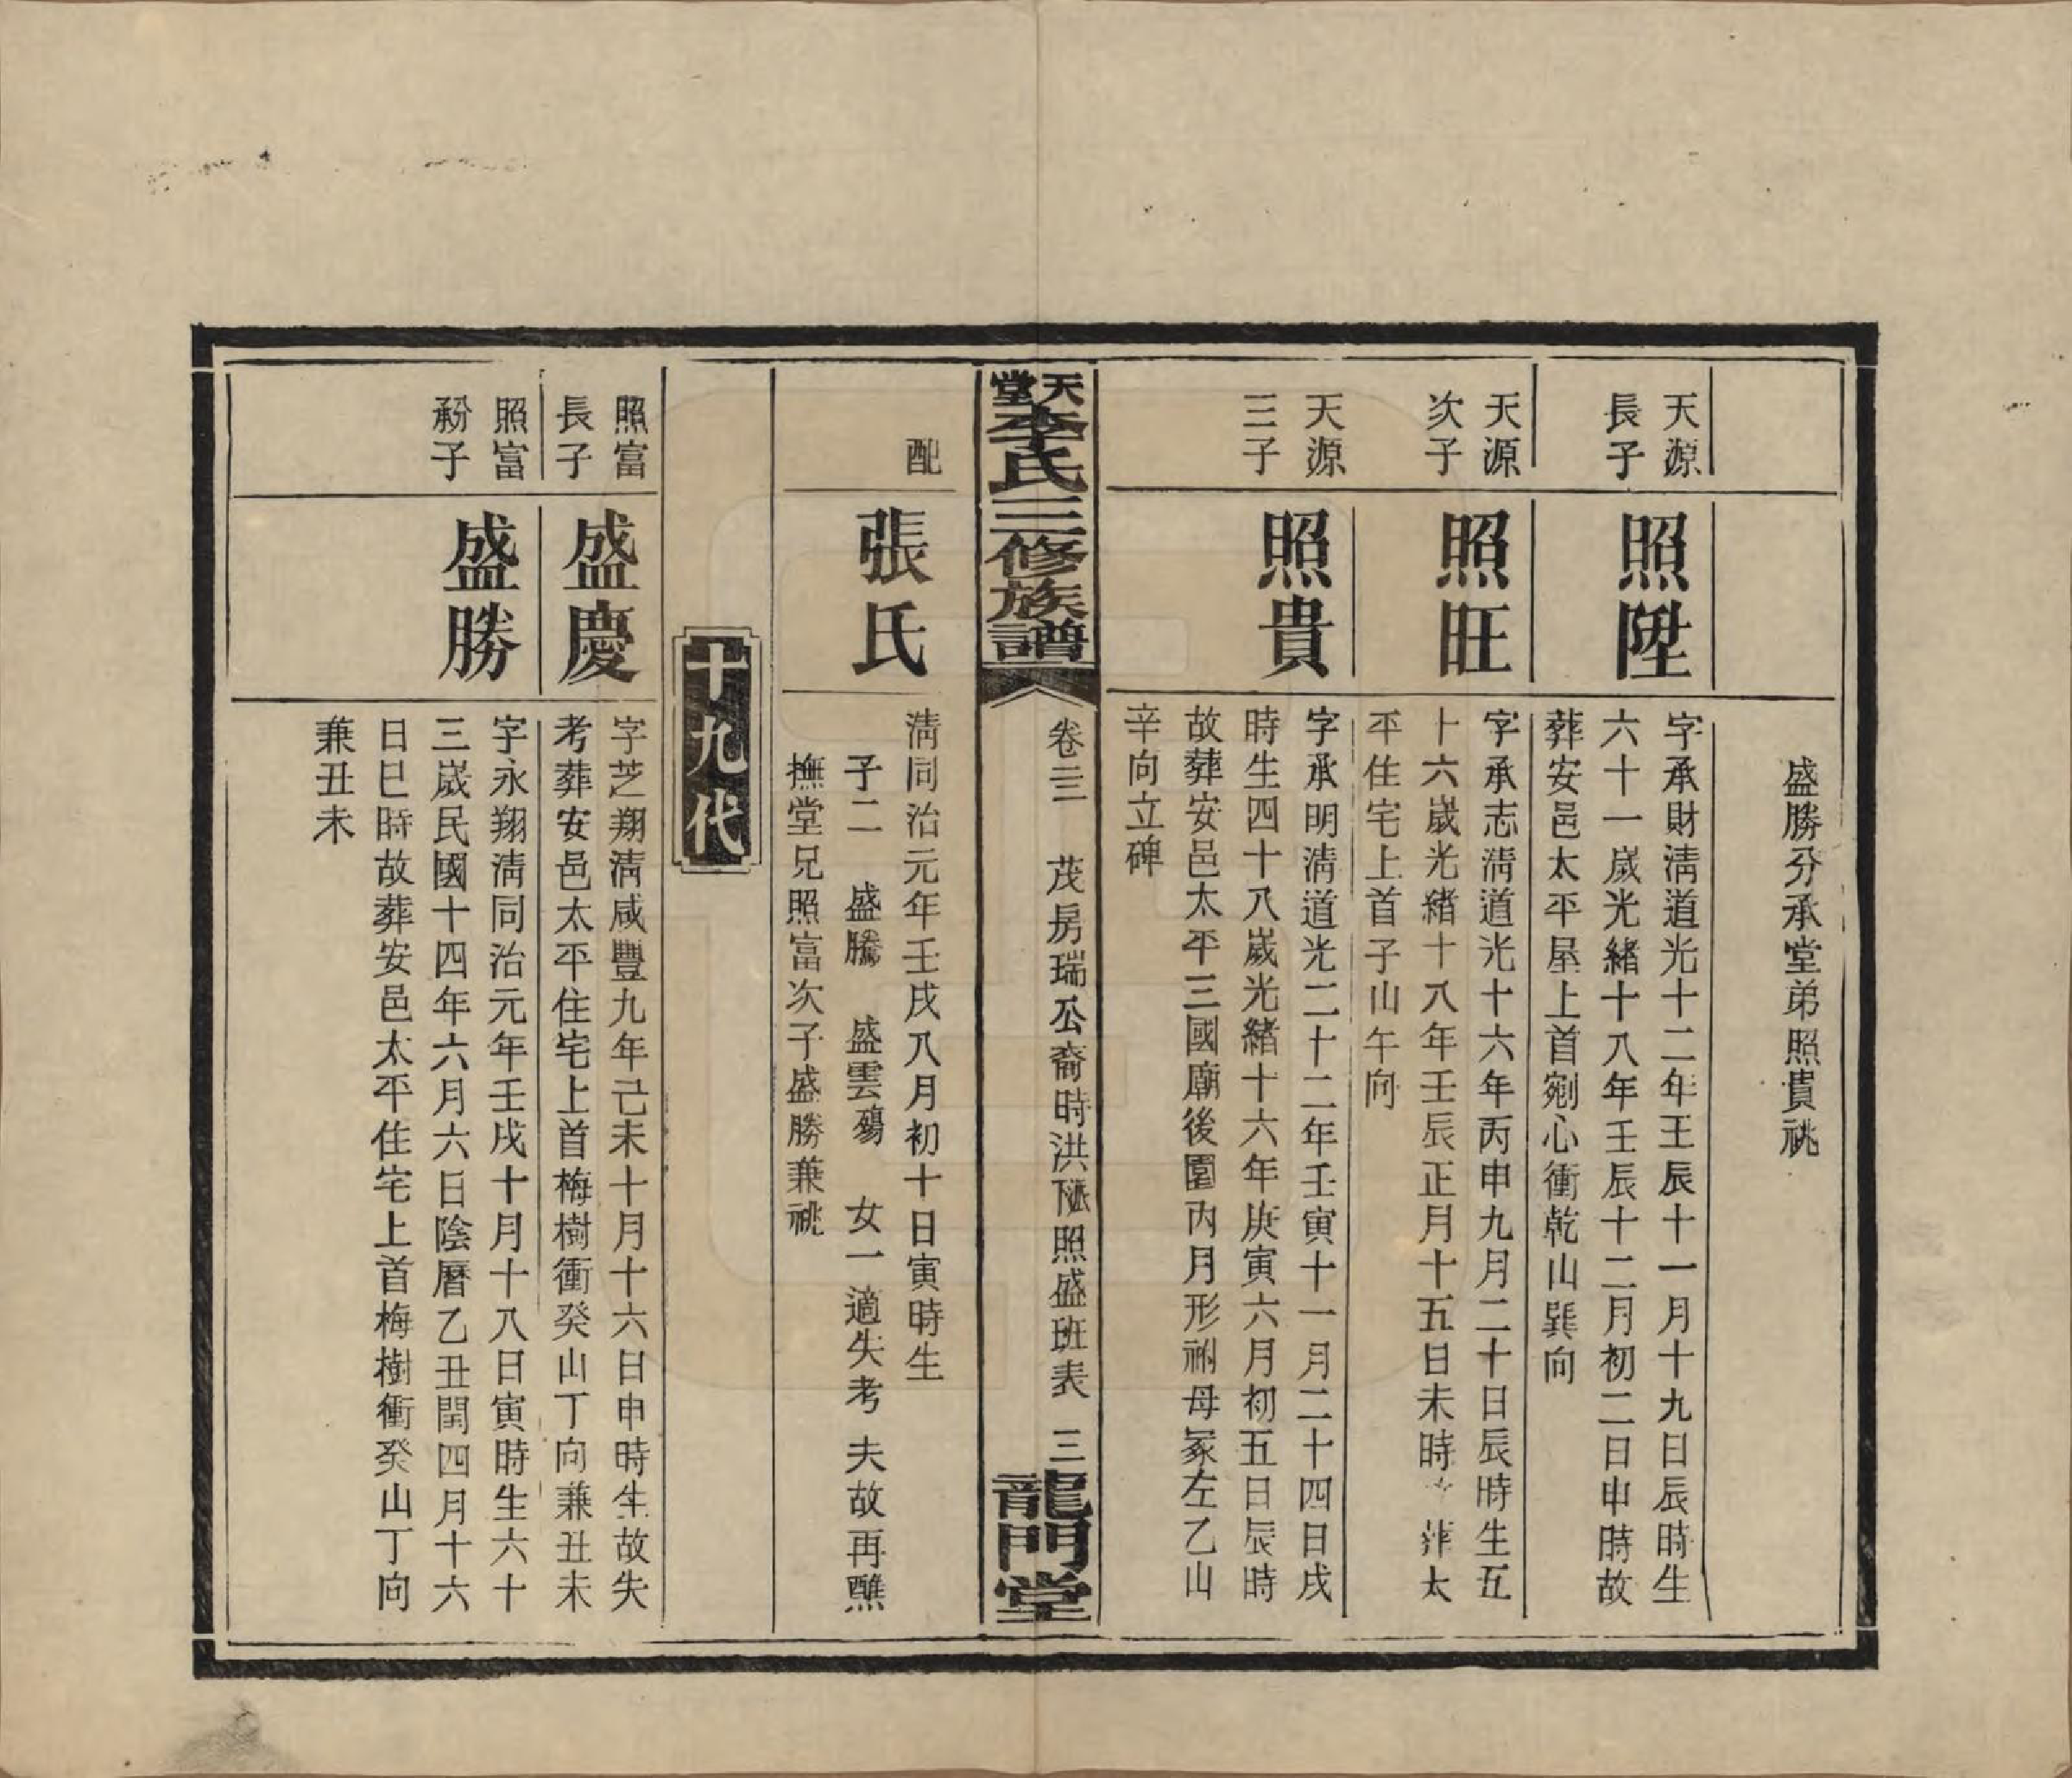 盛勝分承堂弟照貴祧
天源
長子
照陞
字承財淸道光十二年壬辰十一月十九日辰時生
六十一歲光緒十八年壬辰十二月初二日申時故
葬安邑太平屋上首剜心衝乾山巽向
天源
次子
照旺
字承志淸道光十六年丙申九月二十日辰時生五
十六歲光緒十八年壬辰正月十五日未時 葬太
平住宅上首子山午向
天源
三子
照貴
字承明淸道光二十二年壬寅十一月二十四日戌
時生四十八歲光緒十六年庚寅六月初五日辰時
故葬安邑太平三國廟後園內月形祔母冢左乙山
辛向立碑
天堂李氏三修族譜
卷三 茂房瑞公裔時洪 照盛班表 三
龍門堂
配
張氏
淸同治元年壬戌八月初十日寅時生
子二 盛騰 盛雲殤 女一適失考 夫故再醮
撫堂兄照富次子盛勝兼祧
十九代
照富
長子
盛慶
字芝翔淸咸豐九年己未十月十六日申時生故失
考葬安邑太平住宅上首梅樹衝癸山丁向兼丑未
照富
子
盛勝
字永翔淸同治元年壬戌十月十八日寅時生六十
三歲民國十四年六月六日陰曆乙丑閏四月十六
日巳時故葬安邑太平住宅上首梅樹衝癸山丁向
兼丑未